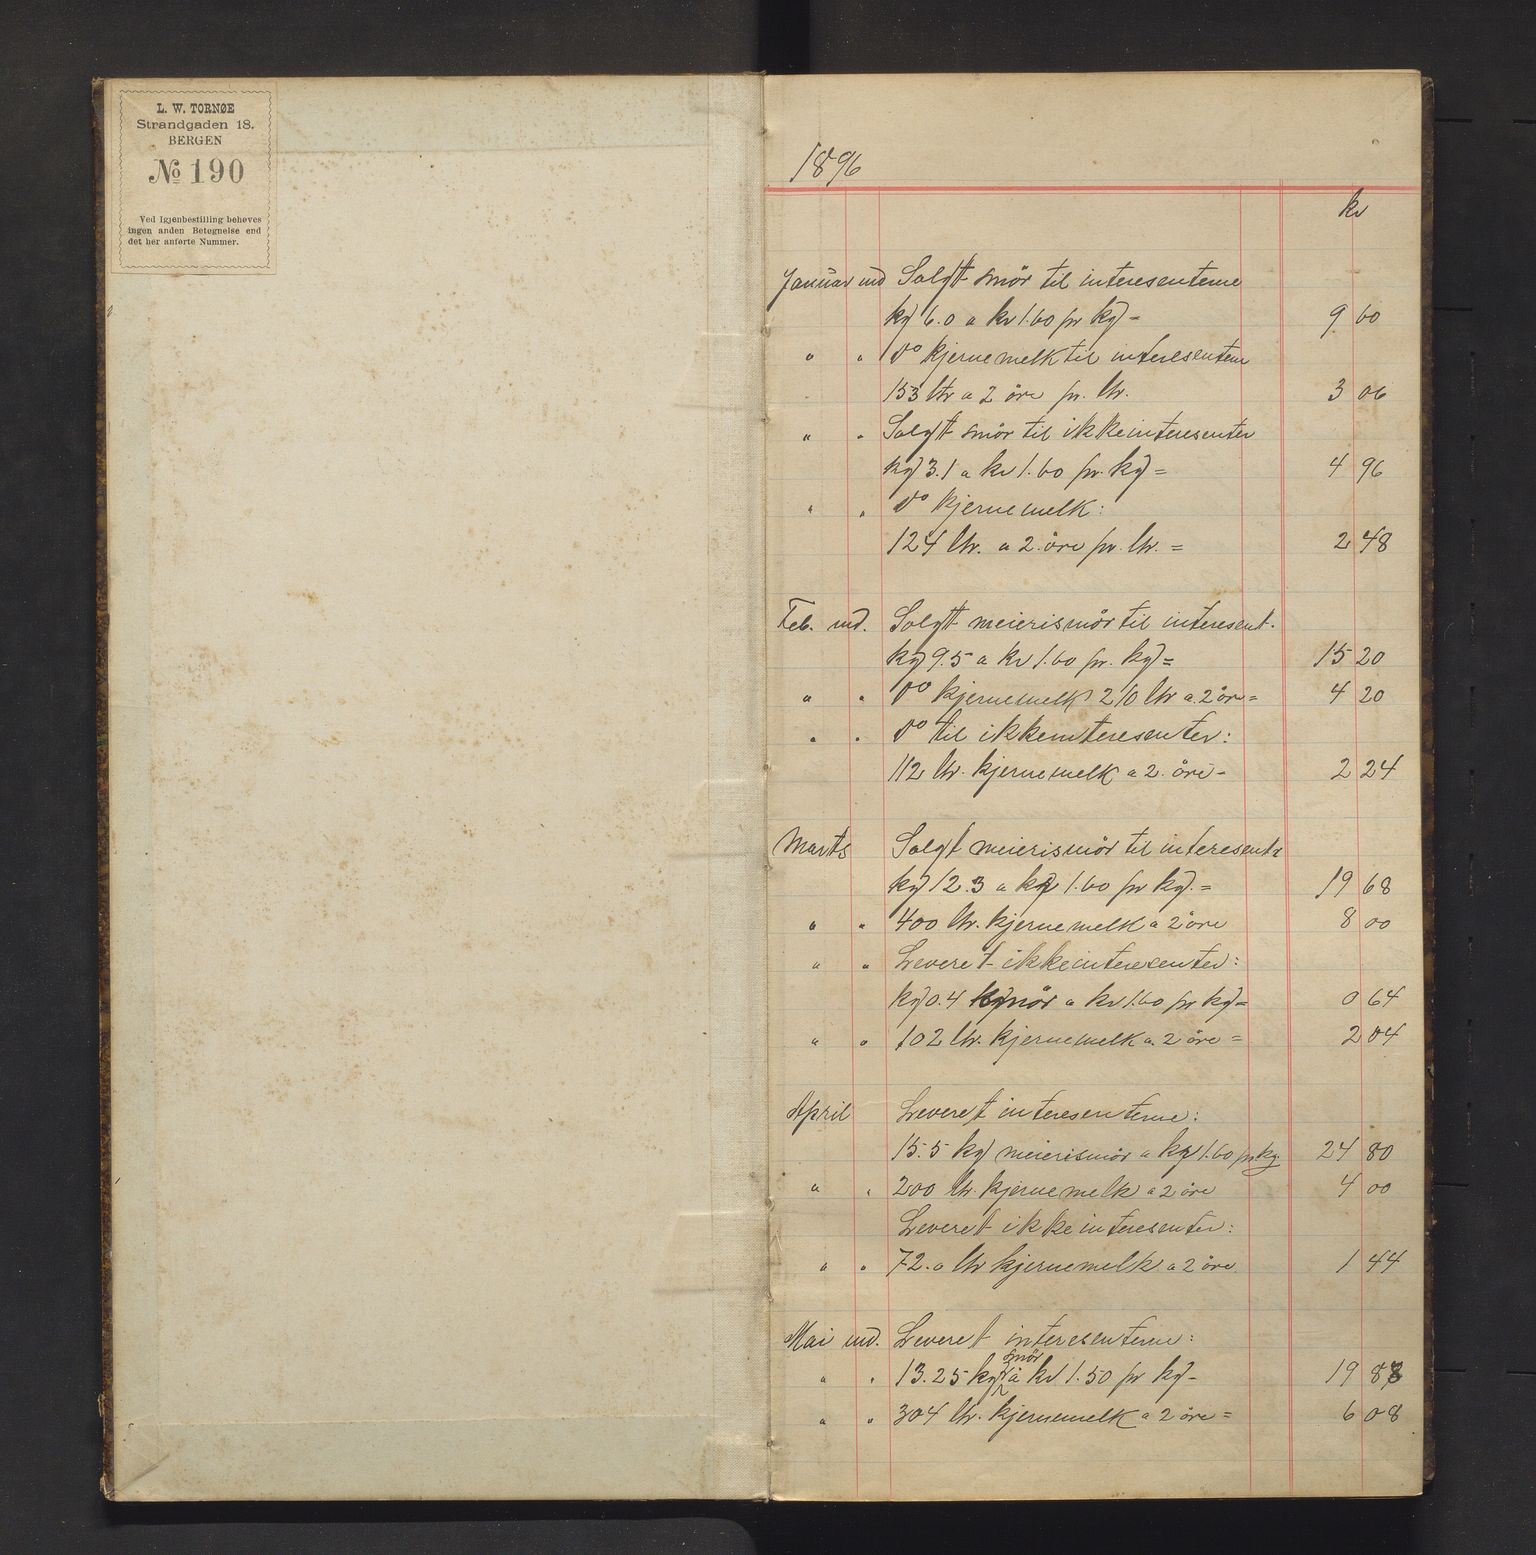 L. W. TORNØE
Strandgaden 18.
BERGEN
No 190
Ved Igjenbestilling behøves
ingen anden Betegnelse end
det her anførte Nummer.
1896
kr
Januar md Solgt smör til interesenterne
kg 6.0 a kr 1.60 pr kg = 9 60
" " Do kjernemelk til interesentern
153 ltr a 2 öre pr. ltr. 3 06
" " Solgt smör til ikkeinteresenter
kg 3.1 a kr 1.60 pr. kg = 4 96
" " Do kjernemelk:
124 ltr. a 2 öre pr. ltr. = 2 48
Feb. md. Solgt meierismör til interesent.
kg 9.5 a kr 1.60 pr. kg = 15 20
" " Do kjernemelk 210 ltr a 2 öre = 4 20
" " Do til ikkeinteresenter:
112 ltr. kjernemelk a 2 öre - 2 24
Marts Solgt meierismör til interesent.
kg 12.3 a kr 1.60 pr kg. = 19 68
" " 400 ltr. kjernemelk a 2 öre 8 00
" " Leveret ikkeinteresenter:
kg 0.4 smör a kr 1.60 pr kg = 0 64
" " 102 ltr. kjernemelk a 2 öre = 2 04
April Leveret interesenterne:
15.5 kg meierismör a kr 1.60 pr kg. 24 80
" " 200 ltr. kjernemelk a 2 öre 4 00
Leveret ikkeinteresenter:
" " 72.0 ltr kjernemelk a 2 öre 1 44
Mai md. Leveret interesenterne:
" " 13.25 kg smör a kr 1.50 pr kg - 19 88
" " 304 ltr. kjernemelk a 2 öre = 6 08